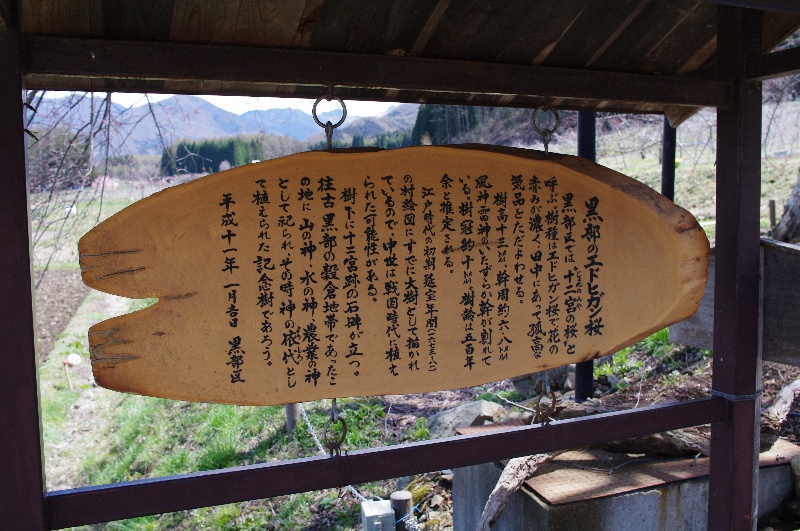 黒部のエドヒガン桜
黒部区では、十二宮の桜と
呼ぶ。樹種はエドヒガン桜で、花の
赤みが濃く、田中にあって孤高な
気品をただよわせる。
樹高十三メートル、幹周約六・八メートル
風神雷神のいたずらか幹が割れて
いる。樹冠約十メートル。樹齢は五百年
余と推定される。
江戸時代の初期延宝年間(一六七三〜八一)
の村絵図にすでに大樹として描かれ
ているので、中世は戦国時代に植え
られた可能性がある。
樹下に十二宮跡の石碑が立つ。
往古黒部の穀倉地帯であったこ
の地に山の神・水の神・農業の神
として祀られ、その時、神の依代とし
て植えられた記念樹であろう。
平成十一年 一月吉日 黒部区